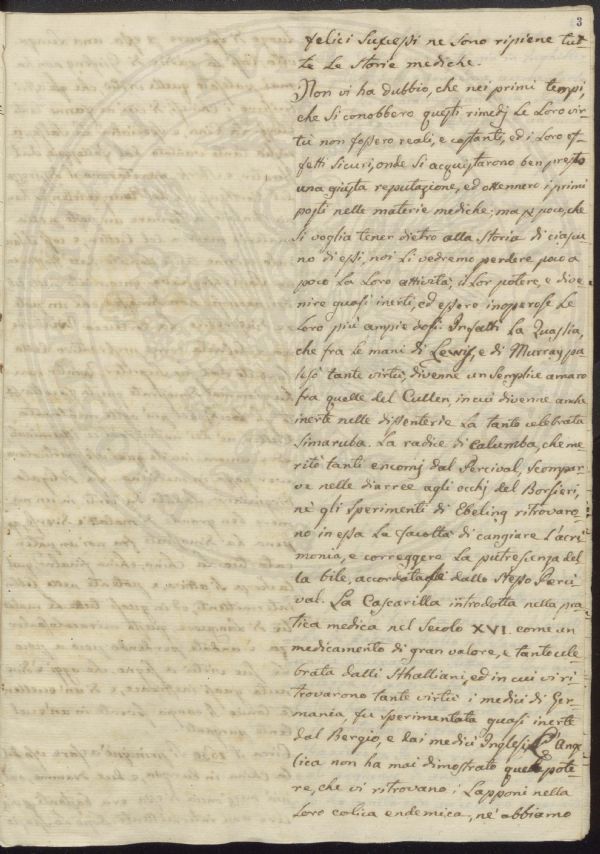 3
felici sucessi ne sono ripiene tut-
te le storie mediche.
Non vi ha dubbio, che nei primi tempi,
che si conobbero questi rimedj le loro vir-
tù non fossero reali, e costanti, ed i loro ef-
fetti sicuri, onde si acquistarono ben presto
una giusta reputazione, ed ottennero i primi
posti nelle materie mediche; ma p poco, che
si voglia tener dietro alla storia di ciascu-
no di essi, noi li vedremo perdere poco a
poco la loro attività, il lor potere, e dive-
nire quasi inerti, ed essere inoperose le
loro più ampie dosi. Infatti la Quassia,
che fra le mani di Lewis, e di Murray pa-
lesò tante virtù, divenne un semplice amaro
fra quelle del Cullen, in cui divenne anche
inerte nelle dissenterie la tanto celebrata
Simaruba. La radice di calumba, che me-
ritò tanti encomj dal Percival, scompar-
ve nelle diarree agli occhj del Borsieri,
nè gli sperimenti di Ebeling ritrovaro-
no in essa la facoltà di cangiare l'acri-
monia, e correggere la putrescenza del-
la bile, accordatale dallo stesso Perci-
val. La Cascarilla introdotta nella pra-
tica medica nel secolo XVI. come un
medicamento di gran valore, e tanto cele-
brata dalli Sthalliani, ed in cui vi ri-
trovarono tante virtù i medici di Ger-
mania, fu sperimentata quasi inerte
dal Bergio, e dai medici Inglesi. L'Ange-
lica non ha mai dimostrato quel pote-
re, che vi ritrovano i Lapponi nella
loro colica endemica, nè abbiamo